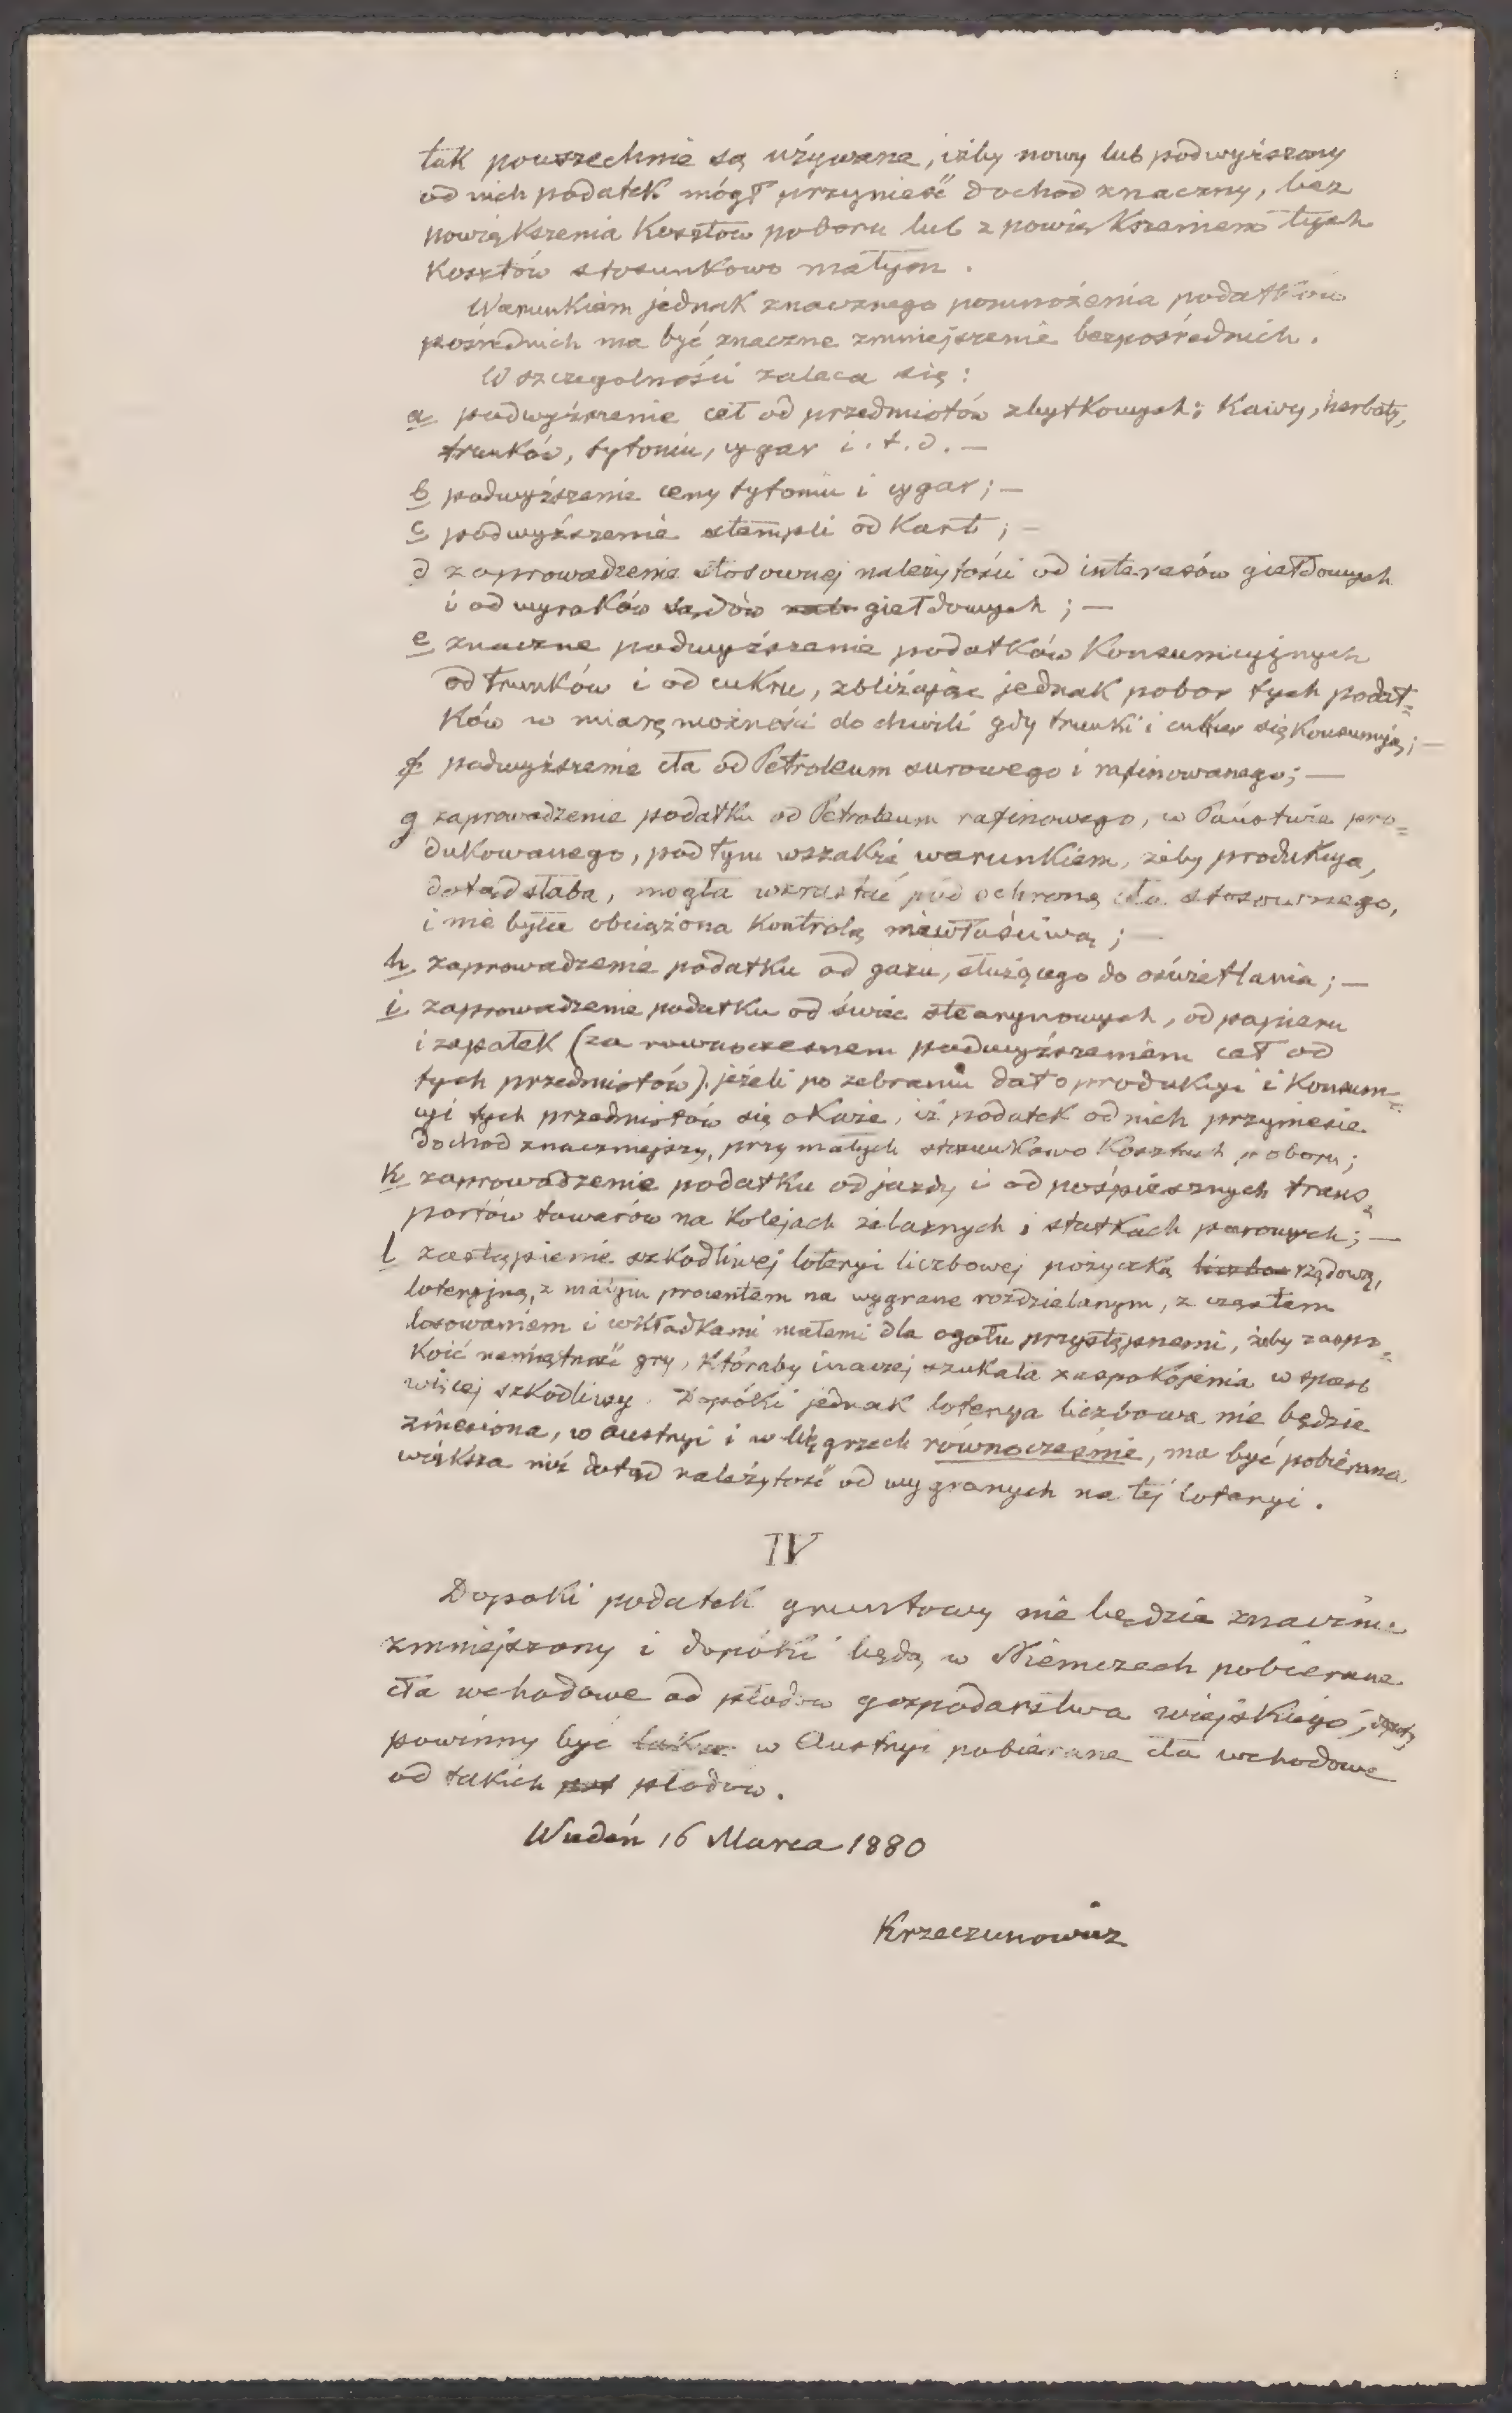 tak powszechnie są używane, iżby nowy lub podwyższony
od nich podatek mógł przynieść dochod znaczny, bez
powiększenia Kosztow poboru lub z powiększeniem tych
Kosztów stosunkowo małym.
Warunkiem jednak znacznego pomnożenia podatków
pośrednich ma być znaczne zmniejszenie bezpośrednich.
W szczegolności zaleca się:
a podwyższenie ceł od przedmiotów zbytkowych; Kawy, herbaty,
trunków, tytoniu, cygar i. t. d. —
b podwyższenie ceny tytoniu i cygar; —
c podwyższenie stempli od Kart; —
d zaprowadzenie stosownej należytości od interesów giełdowych
i od wyroków sądów giełdowych; —
e znaczne podwyższenie podatków Konsumcyjnych
od trunków i od cukru, zbliżając jednak pobor tych podat=
ków w miarę możności do chwili gdy trunki i cukier się Konsumują; —
f podwyższenie cła od Petroleum surowego i rafinowanego; —
g zaprowadzenie podatku od Petroleum rafinowego, w Państwie pro=
dukowanego, pod tym wszakże warunkiem, żeby produkcya,
dotąd słaba, mogła wzrastać pod ochroną cła stosownego,
i nie była obciążona Kontrolą niewłaściwą; —
h zaprowadzenie podatku od gazu, służącego do oświetlania; —
i zaprowadzenie podatku od świec stearynowych, od papieru
i zapałek (za rownoczesnem podwyższeniem ceł od
tych przedmiotów), jeżeli po zebraniu dat o produkcyi i Konsum=
cyi tych przedmiotów się okaże, iż podatek od nich przyniesie
dochod znaczniejszy, przy małych stosunkowo Kosztach poboru;
k zaprowadzenie podatku od jazdy i od pośpiesznych trans=
portów towarów na Kolejach żelaznych i statkach parowych; —
l zastąpienie szkodliwej loteryi liczbowej pożyczką rządową,
loteryjną, z małym procentem na wygrane rozdzielanym, z częstem
losowaniem i wkładkami małemi dla ogołu przystępnemi, żeby zaspo=
Koić namiętność gry, Któraby inaczej szukała zaspokojenia w sposb
więcej szkodliwy. Dopóki jednak loterya liczbowa nie będzie
zniesiona, w Austryi i w Węgrzech równocześnie, ma być pobierana
większa niż dotąd należytość od wygranych na tej loteryi.
IV
Dopoki podatek gruntowy nie będzie znacznie
zmniejszony i dopóki będą w Niemczech pobierane
cła wchodowe od płodow gospodarstwa wiejskiego, dopoty
powinny być także w Austryi pobierane cła wchodowe
od takich płodow.
Wiedeń 16 Marca 1880
Krzeczunowicz